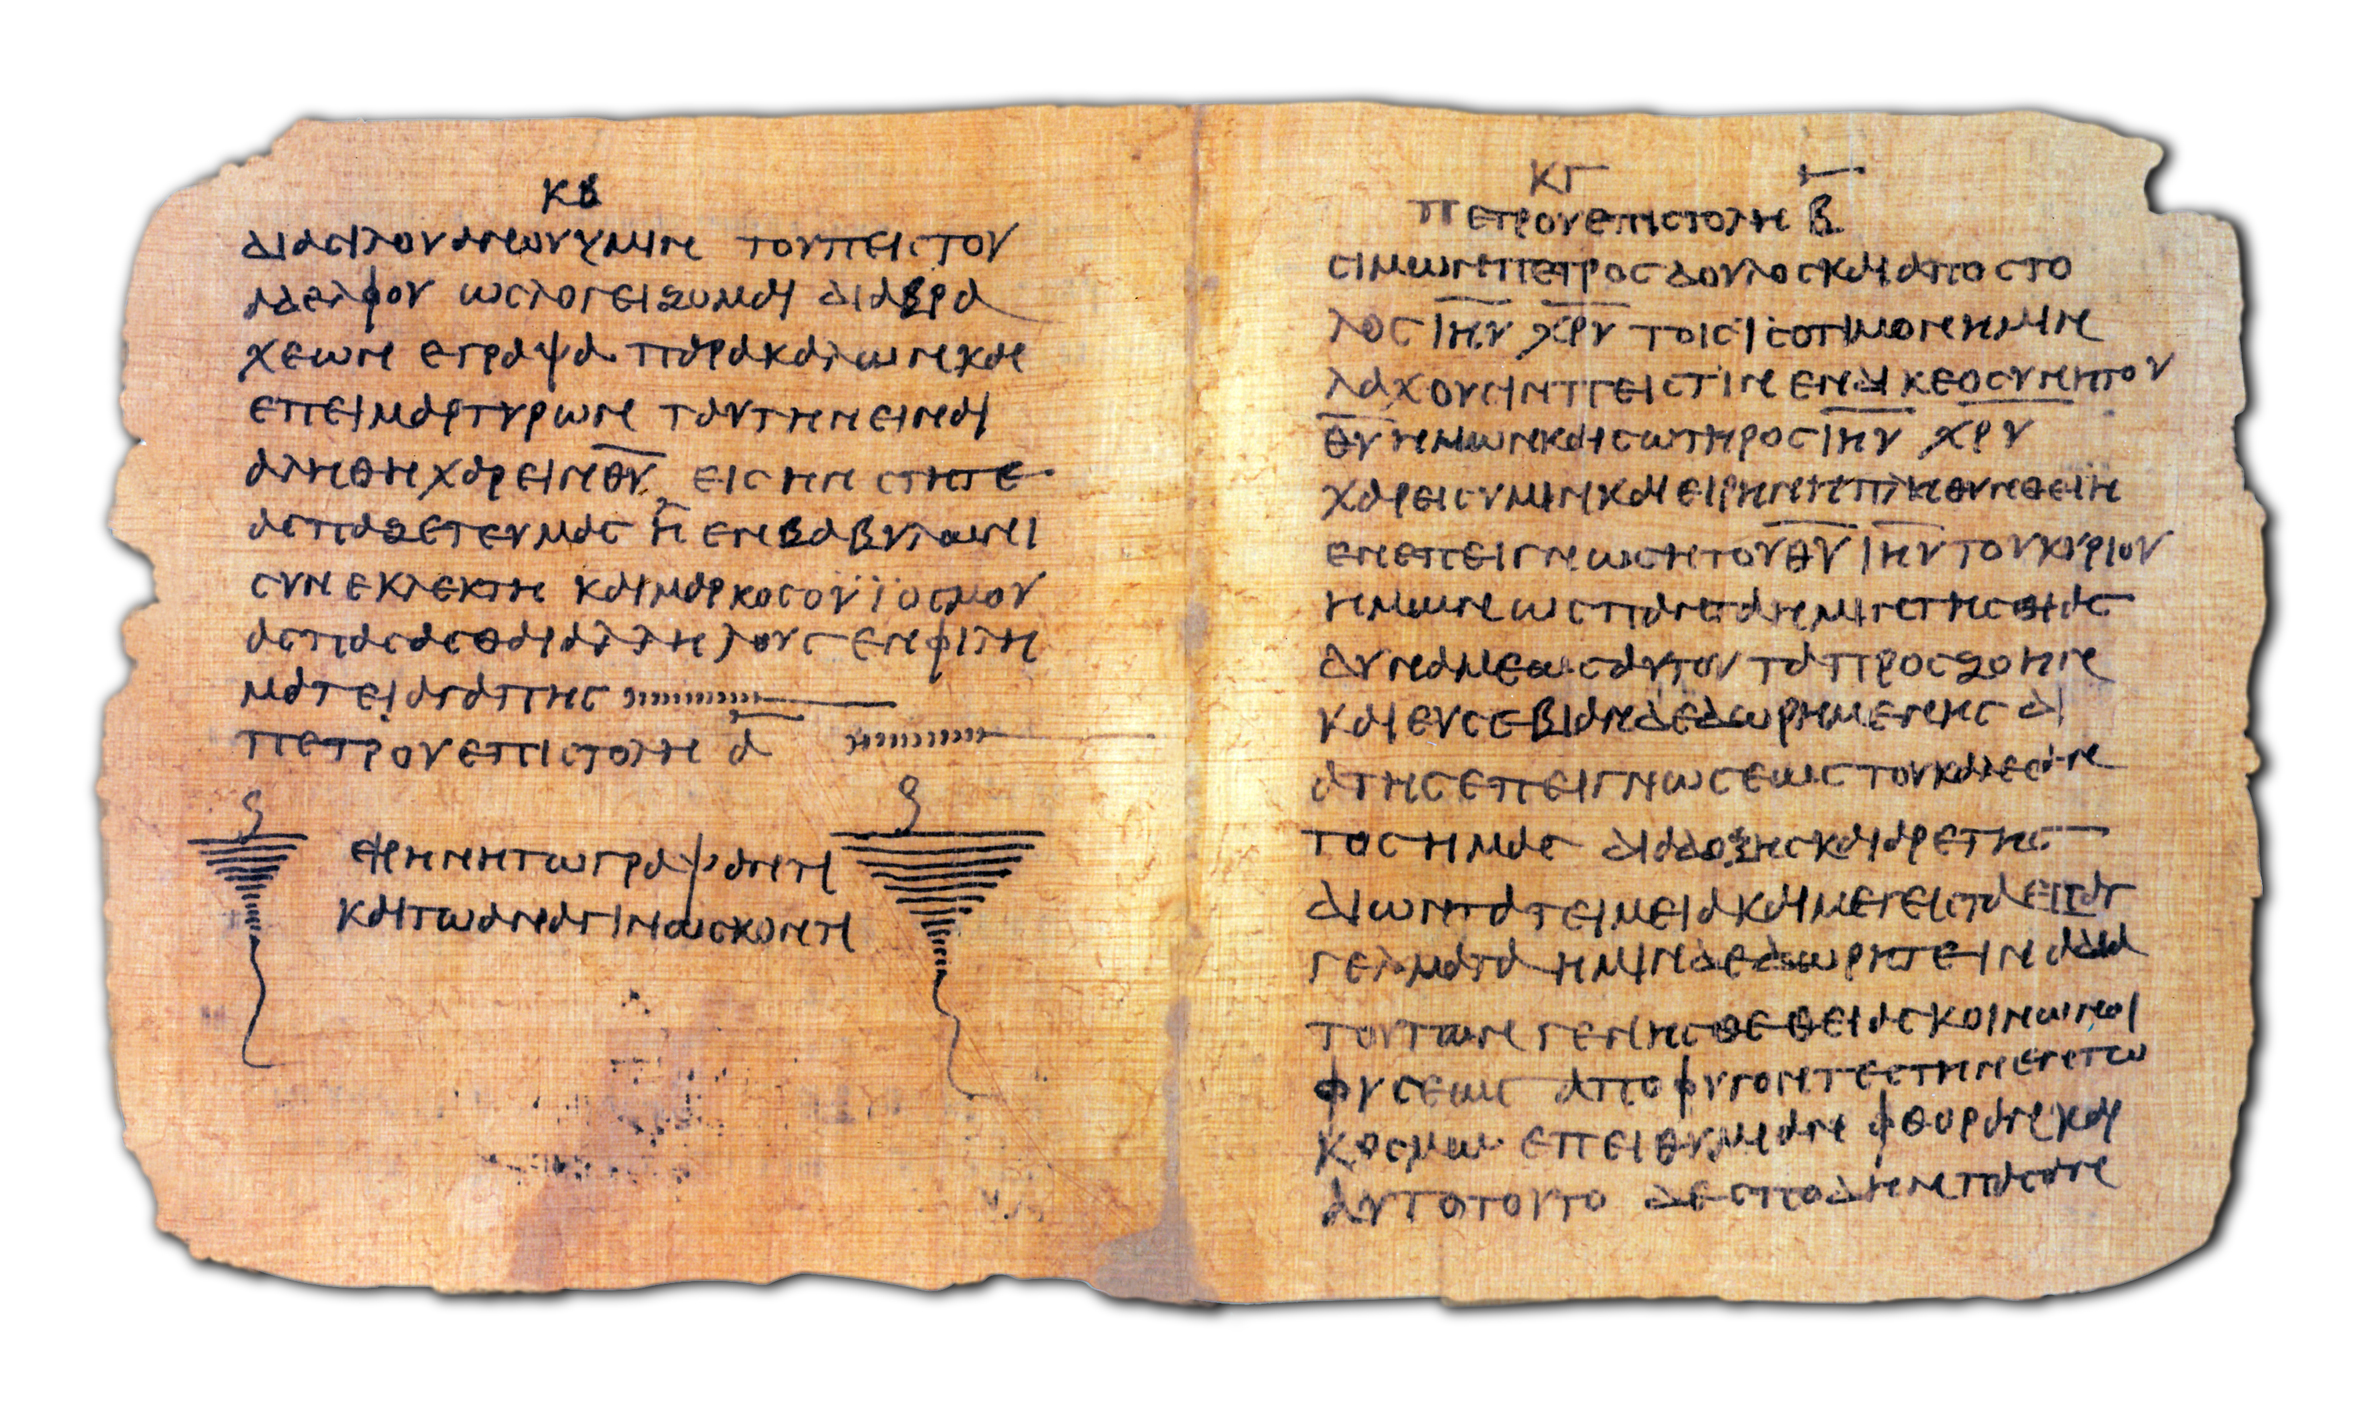 ΚΒ
ΔΙΑ ϹΙΛΟΥΑΝΟΥ ΥΜΙΝ ΤΟΥ ΠΕΙϹΤΟΥ
ΑΔΕΛΦΟΥ ΩϹ ΛΟΓΕΙΖΟΜΑΙ ΔΙΑ ΒΡΑ
ΧΕΩΝ ΕΓΡΑΨΑ ΠΑΡΑΚΑΛΩΝ ΚΑΙ
ΕΠΕΙΜΑΡΤΥΡΩΝ ΤΑΥΤΗΝ ΕΙΝΑΙ
ΑΛΗΘΗ ΧΑΡΕΙΝ Θ̅Υ̅ ΕΙϹ ΗΝ ϹΤΗΤΕ
ΑϹΠΑΖΕΤΕ ΥΜΑϹ Η ΕΝ ΒΑΒΥΛΩΝΙ
ϹΥΝΕΚΛΕΚΤΗ ΚΑΙ ΜΑΡΚΟϹ Ο ΥΪΟϹ ΜΟΥ
ΑϹΠΑϹΑϹΘΑΙ ΑΛΛΗΛΟΥϹ ΕΝ ΦΙΛΗ
ΜΑΤΕΙ ΑΓΑΠΗϹ
ΠΕΤΡΟΥ ΕΠΙϹΤΟΛΗ Α̅
ΕΙΡΗΝΗ ΤΩ ΓΡΑΨΑΝΤΙ
ΚΑΙ ΤΩ ΑΝΑΓΙΝΩϹΚΟΝΤΙ
ΚΓ
ΠΕΤΡΟΥ ΕΠΙϹΤΟΛΗ Β̅
ϹΙΜΩΝ ΠΕΤΡΟϹ ΔΟΥΛΟϹ ΚΑΙ ΑΠΟϹΤΟ
ΛΟϹ Ι̅Η̅Υ̅ Χ̅Ρ̅Υ̅ ΤΟΙϹ ΙϹΟΤΙΜΟΝ ΗΜΙΝ
ΛΑΧΟΥϹΙΝ ΠΕΙϹΤΙΝ ΕΝ ΔΙΚΕΟϹΥΝΗ ΤΟΥ
Θ̅Υ̅ ΗΜΩΝ ΚΑΙ ϹΩΤΗΡΟϹ Ι̅Η̅Υ̅ Χ̅Ρ̅Υ̅
ΧΑΡΕΙϹ ΥΜΙΝ ΚΑΙ ΕΙΡΗΝΗ ΠΛΗΘΥΝΘΕΙΗ
ΕΝ ΕΠΕΙΓΝΩϹΗ ΤΟΥ Θ̅Υ̅ Ι̅Η̅Υ̅ ΤΟΥ ΚΥΡΙΟΥ
ΗΜΩΝ ΩϹ ΠΑΝΤΑ ΗΜΙΝ ΤΗϹ ΘΙΑϹ
ΔΥΝΑΜΕΩϹ ΑΥΤΟΥ ΤΑ ΠΡΟϹ ΖΟΗΝ
ΚΑΙ ΕΥϹΕΒΙΑΝ ΔΕΔΩΡΗΜΕΝΗϹ ΔΙ
Α ΤΗϹ ΕΠΕΙΓΝΩϹΕΩϹ ΤΟΥ ΚΑΛΕϹΑΝ
ΤΟϹ ΗΜΑϹ ΔΙΑ ΔΟΞΗϹ ΚΑΙ ΑΡΕΤΗϹ
ΔΙ ΩΝ ΤΑ ΤΕΙΜΕΙΑ ΚΑΙ ΜΕΓΕΙϹΤΑ ΕΠΑΓ
ΓΕΛΜΑΤΑ ΗΜΙΝ ΔΕΔΩΡΗΤΕ ΙΝΑ ΔΙΑ
ΤΟΥΤΩΝ ΓΕΝΗϹΘΕ ΘΕΙΑϹ ΚΟΙΝΩΝΟΙ
ΦΥϹΕΩϹ ΑΠΟΦΥΓΟΝΤΕϹ ΤΗΝ ΕΝ ΤΩ
ΚΟϹΜΩ ΕΠΕΙΘΥΜΙΑΝ ΦΘΟΡΑΝ ΚΑΙ
ΑΥΤΟ ΤΟΥΤΟ ΔΕ ϹΠΟΔΗΝ ΠΑϹΑΝ